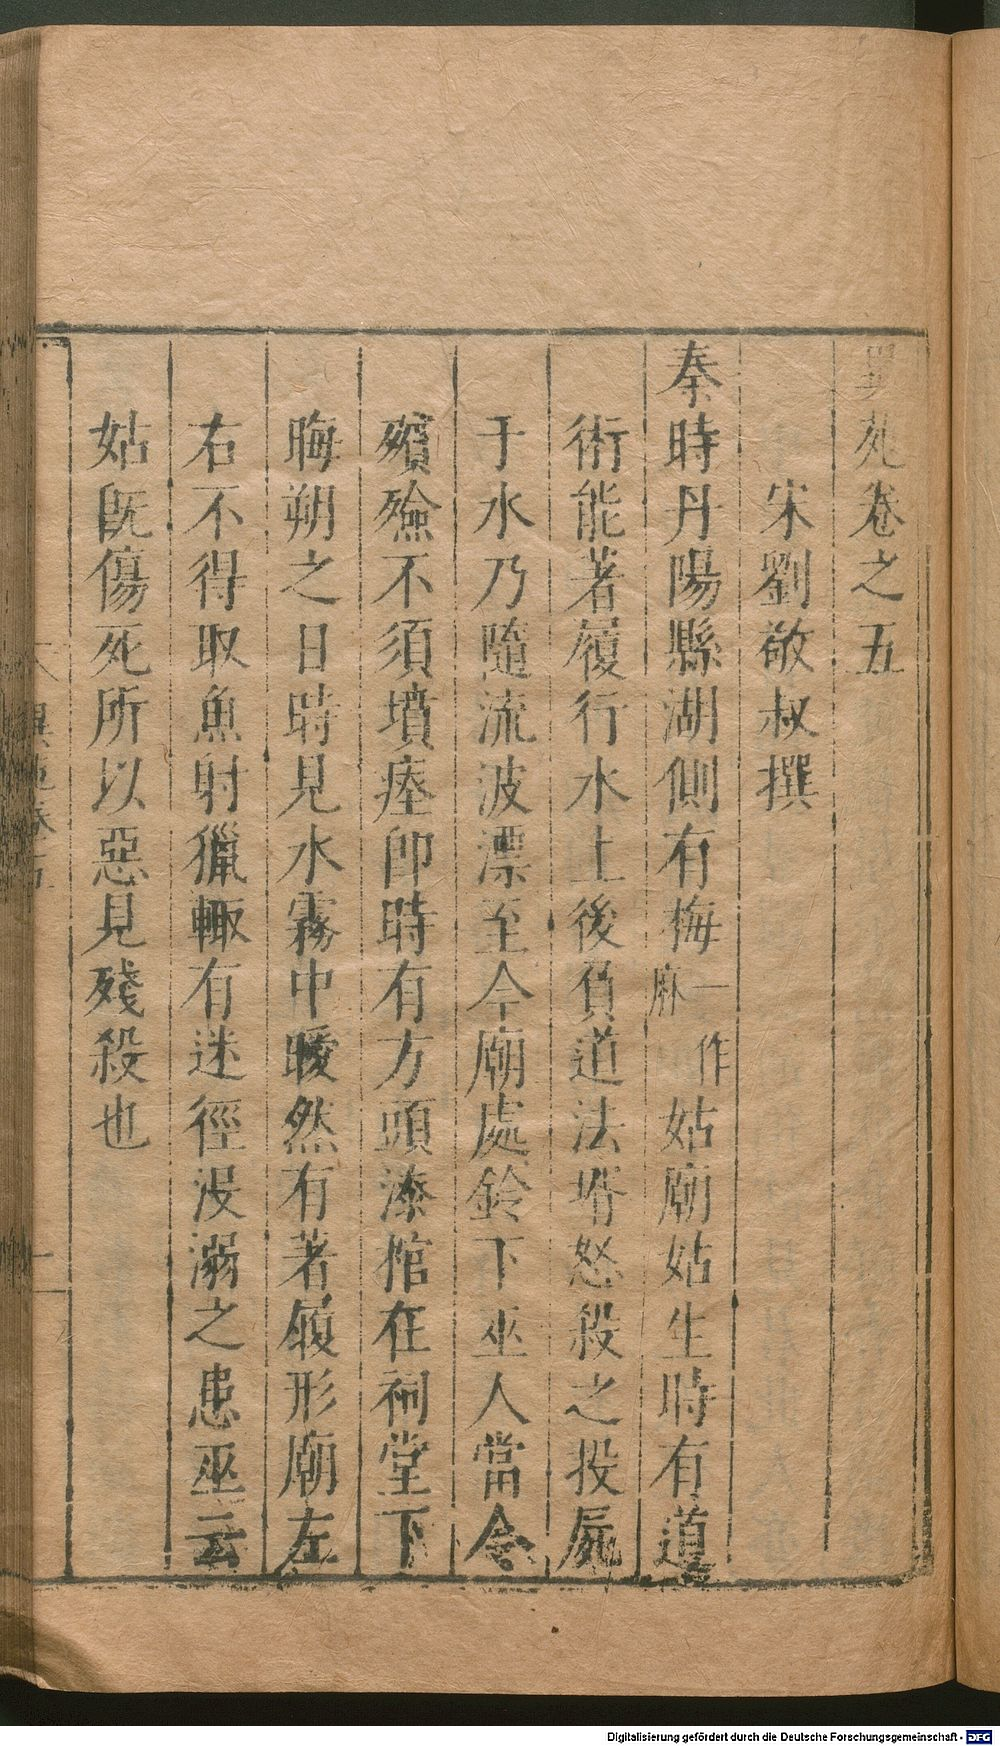 異苑卷之五
宋劉敬叔撰
秦時丹陽縣湖側有梅一作麻姑廟姑生時有道
術能著履行水上後負道法壻怒殺之投屍
于水乃隨流波漂至今廟處鈴下巫人當令
殯殮不須墳瘞卽時有方頭漆棺在祠堂下
晦朔之日時見水霧中曖然有著履形廟左
右不得取魚射獵輒有迷徑没溺之患巫云
姑旣傷死所以惡見殘殺也
異苑卷五
一
Digitalisierung gefördert durch die Deutsche Forschungsgemeinschaft - DFG